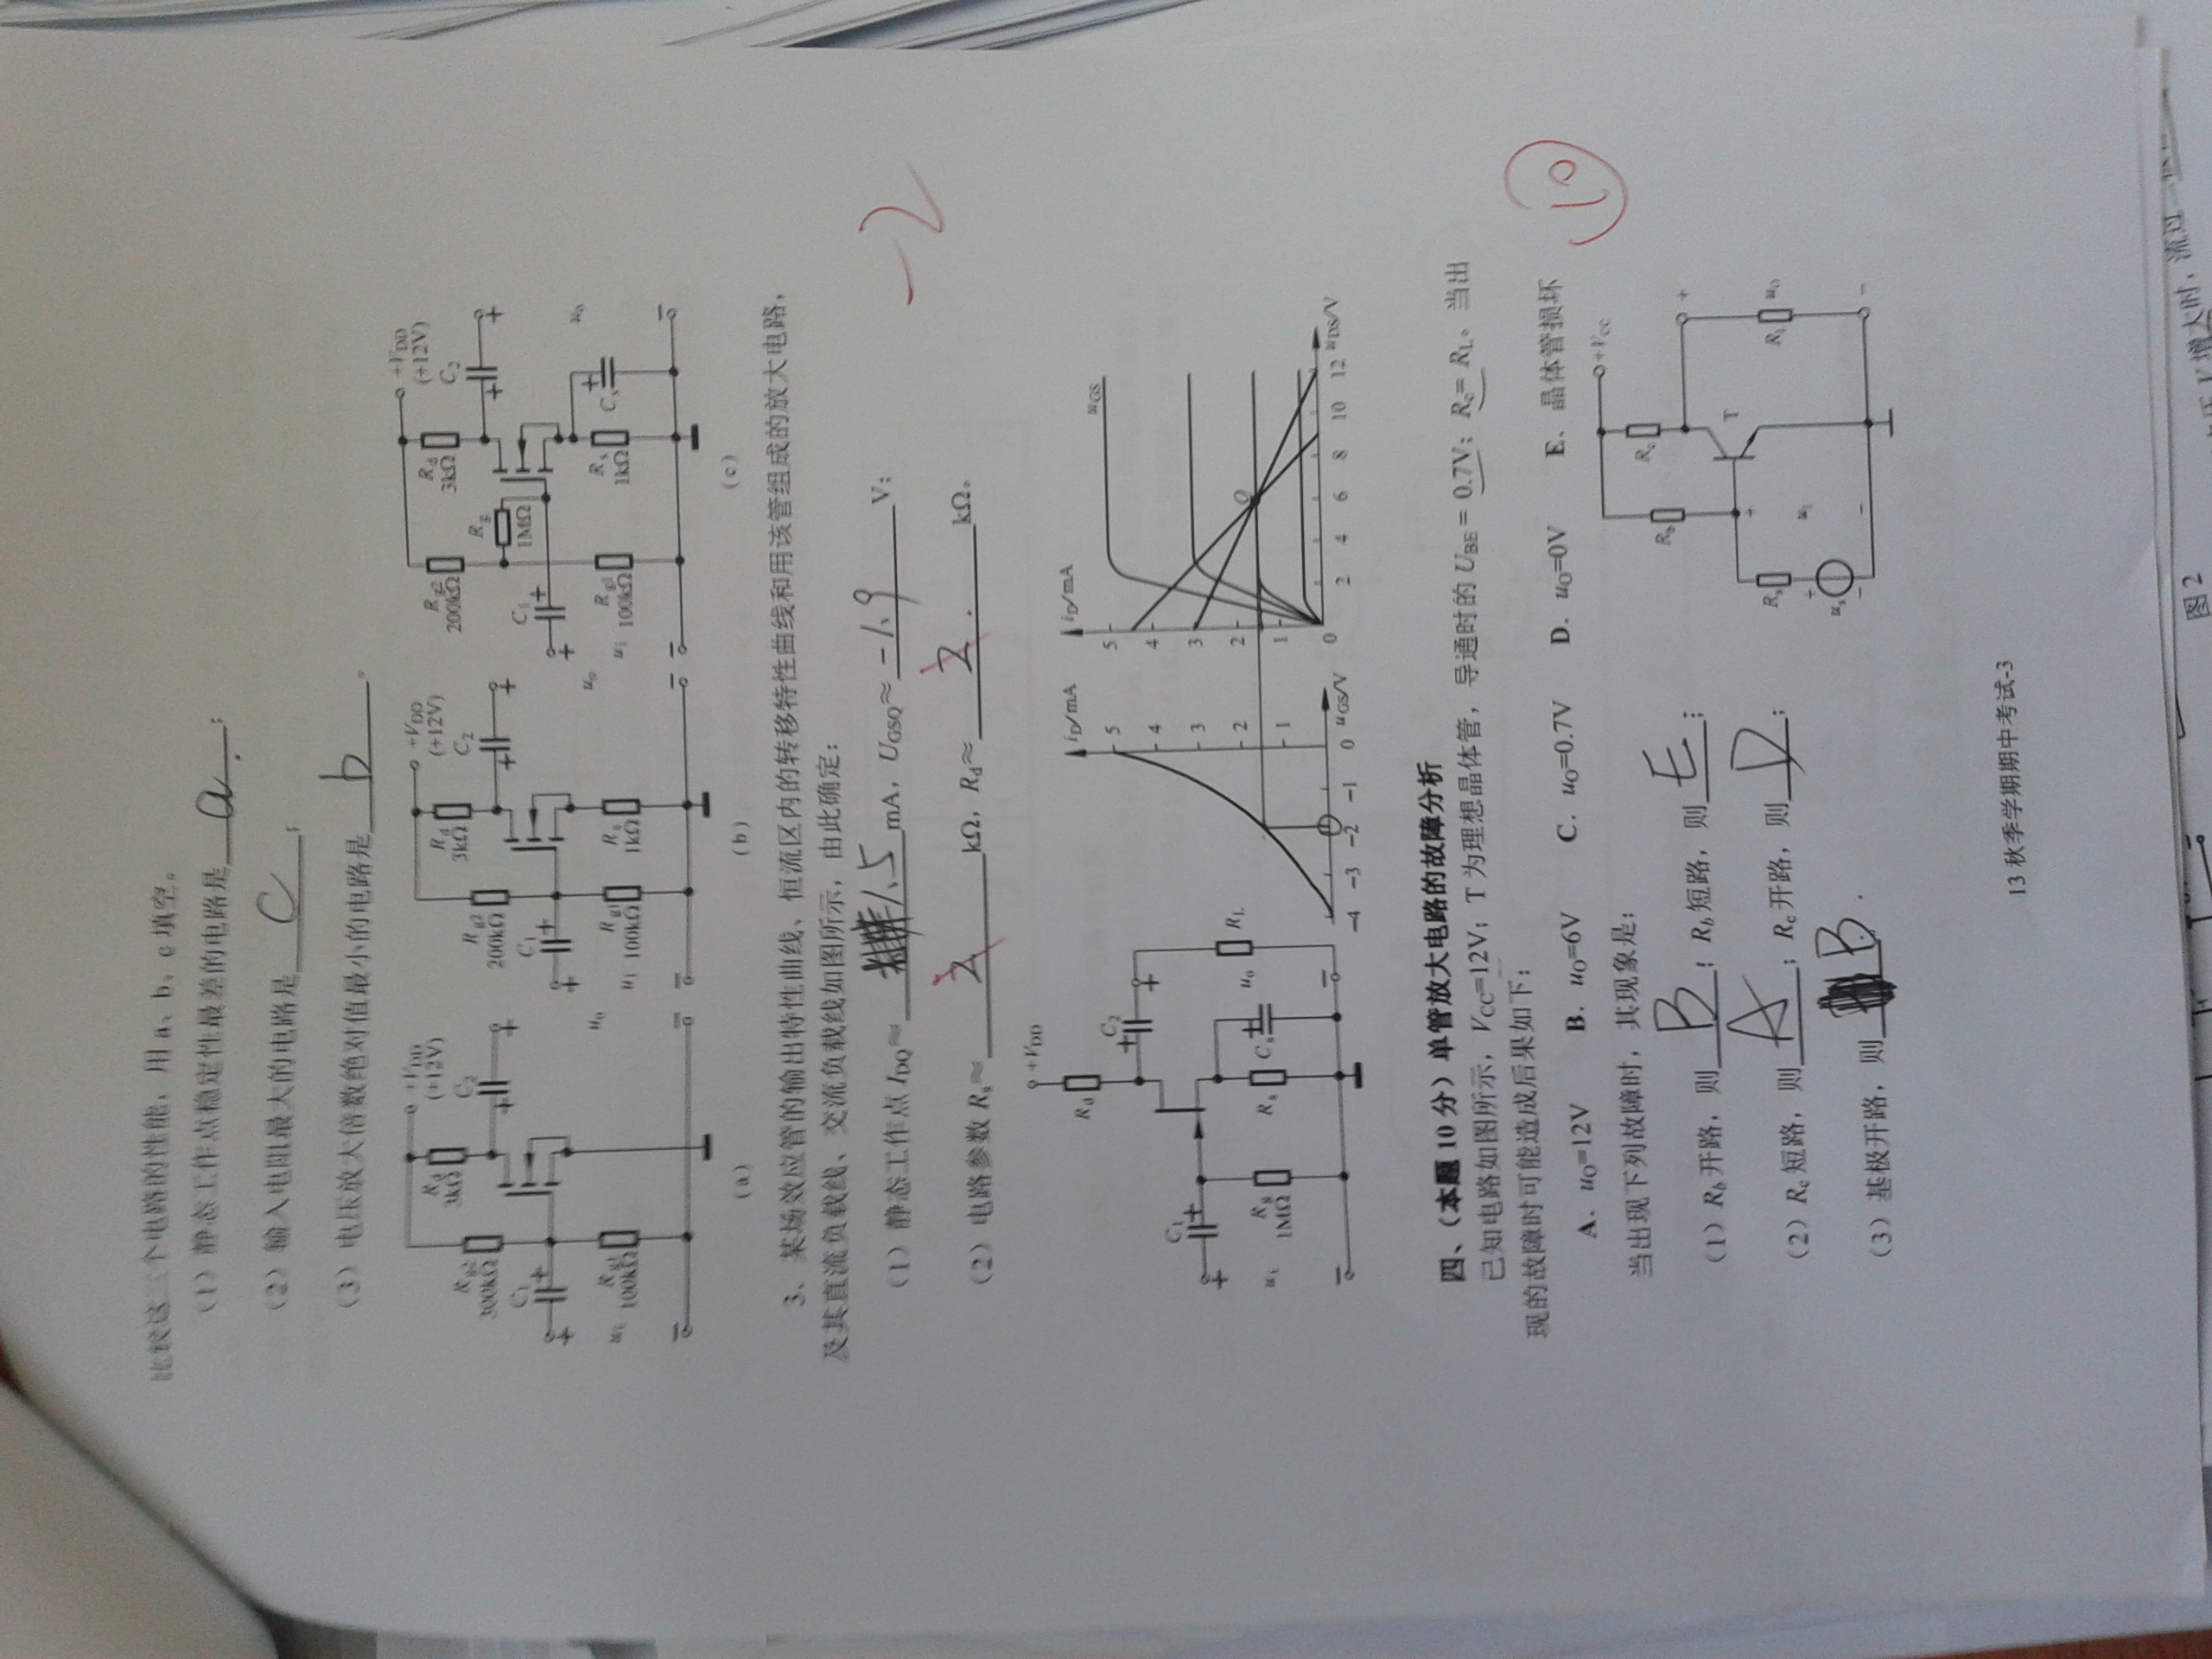 比较这三个电路的性能，用 a、b、c 填空。
（1）静态工作点稳定性最差的电路是 a ；
（2）输入电阻最大的电路是 C ；
（3）电压放大倍数绝对值最小的电路是 b 。
+VDD (+12V) Rd 3kΩ Rg2 300kΩ C2 C1 Rg1 100kΩ ui uo
+VDD (+12V) Rd 3kΩ Rg2 200kΩ C2 C1 Rg1 100kΩ Rs 1kΩ ui uo
+VDD (+12V) Rg2 200kΩ Rd 3kΩ C2 Rg 1MΩ C1 Rg1 100kΩ Rs 1kΩ Cs ui uo
(a) (b) (c)
3、某场效应管的输出特性曲线、恒流区内的转移特性曲线和用该管组成的放大电路，
及其直流负载线、交流负载线如图所示，由此确定：
（1）静态工作点 IDQ≈ 1.5 mA，UGSQ≈ -1.9 V；
-2
（2）电路参数 Rs≈ 2 kΩ，Rd≈ 2 . kΩ。
+VDD Rd C2 C1 Rg 1MΩ Rs Cs uo RL ui
iD/mA 5 4 3 2 1 -4 -3 -2 -1 0 uGS/V
iD/mA uGS 5 4 3 2 1 Q 0 2 4 6 8 10 12 uDS/V
四、（本题 10 分）单管放大电路的故障分析
已知电路如图所示，VCC=12V；T 为理想晶体管，导通时的 UBE = 0.7V；Rc= RL。当出
现的故障时可能造成后果如下：
A．uO=12V B．uO=6V C．uO=0.7V D．uO=0V E．晶体管损坏
10
当出现下列故障时，其现象是：
（1）Rb 开路，则 B ；Rb 短路，则 E ；
（2）Rc 短路，则 A ；Rc 开路，则 D ；
（3）基极开路，则 B .
+VCC Rc Rb T Rs us ui RL uO
13 秋季学期期中考试-3
图 2
增大时，流过